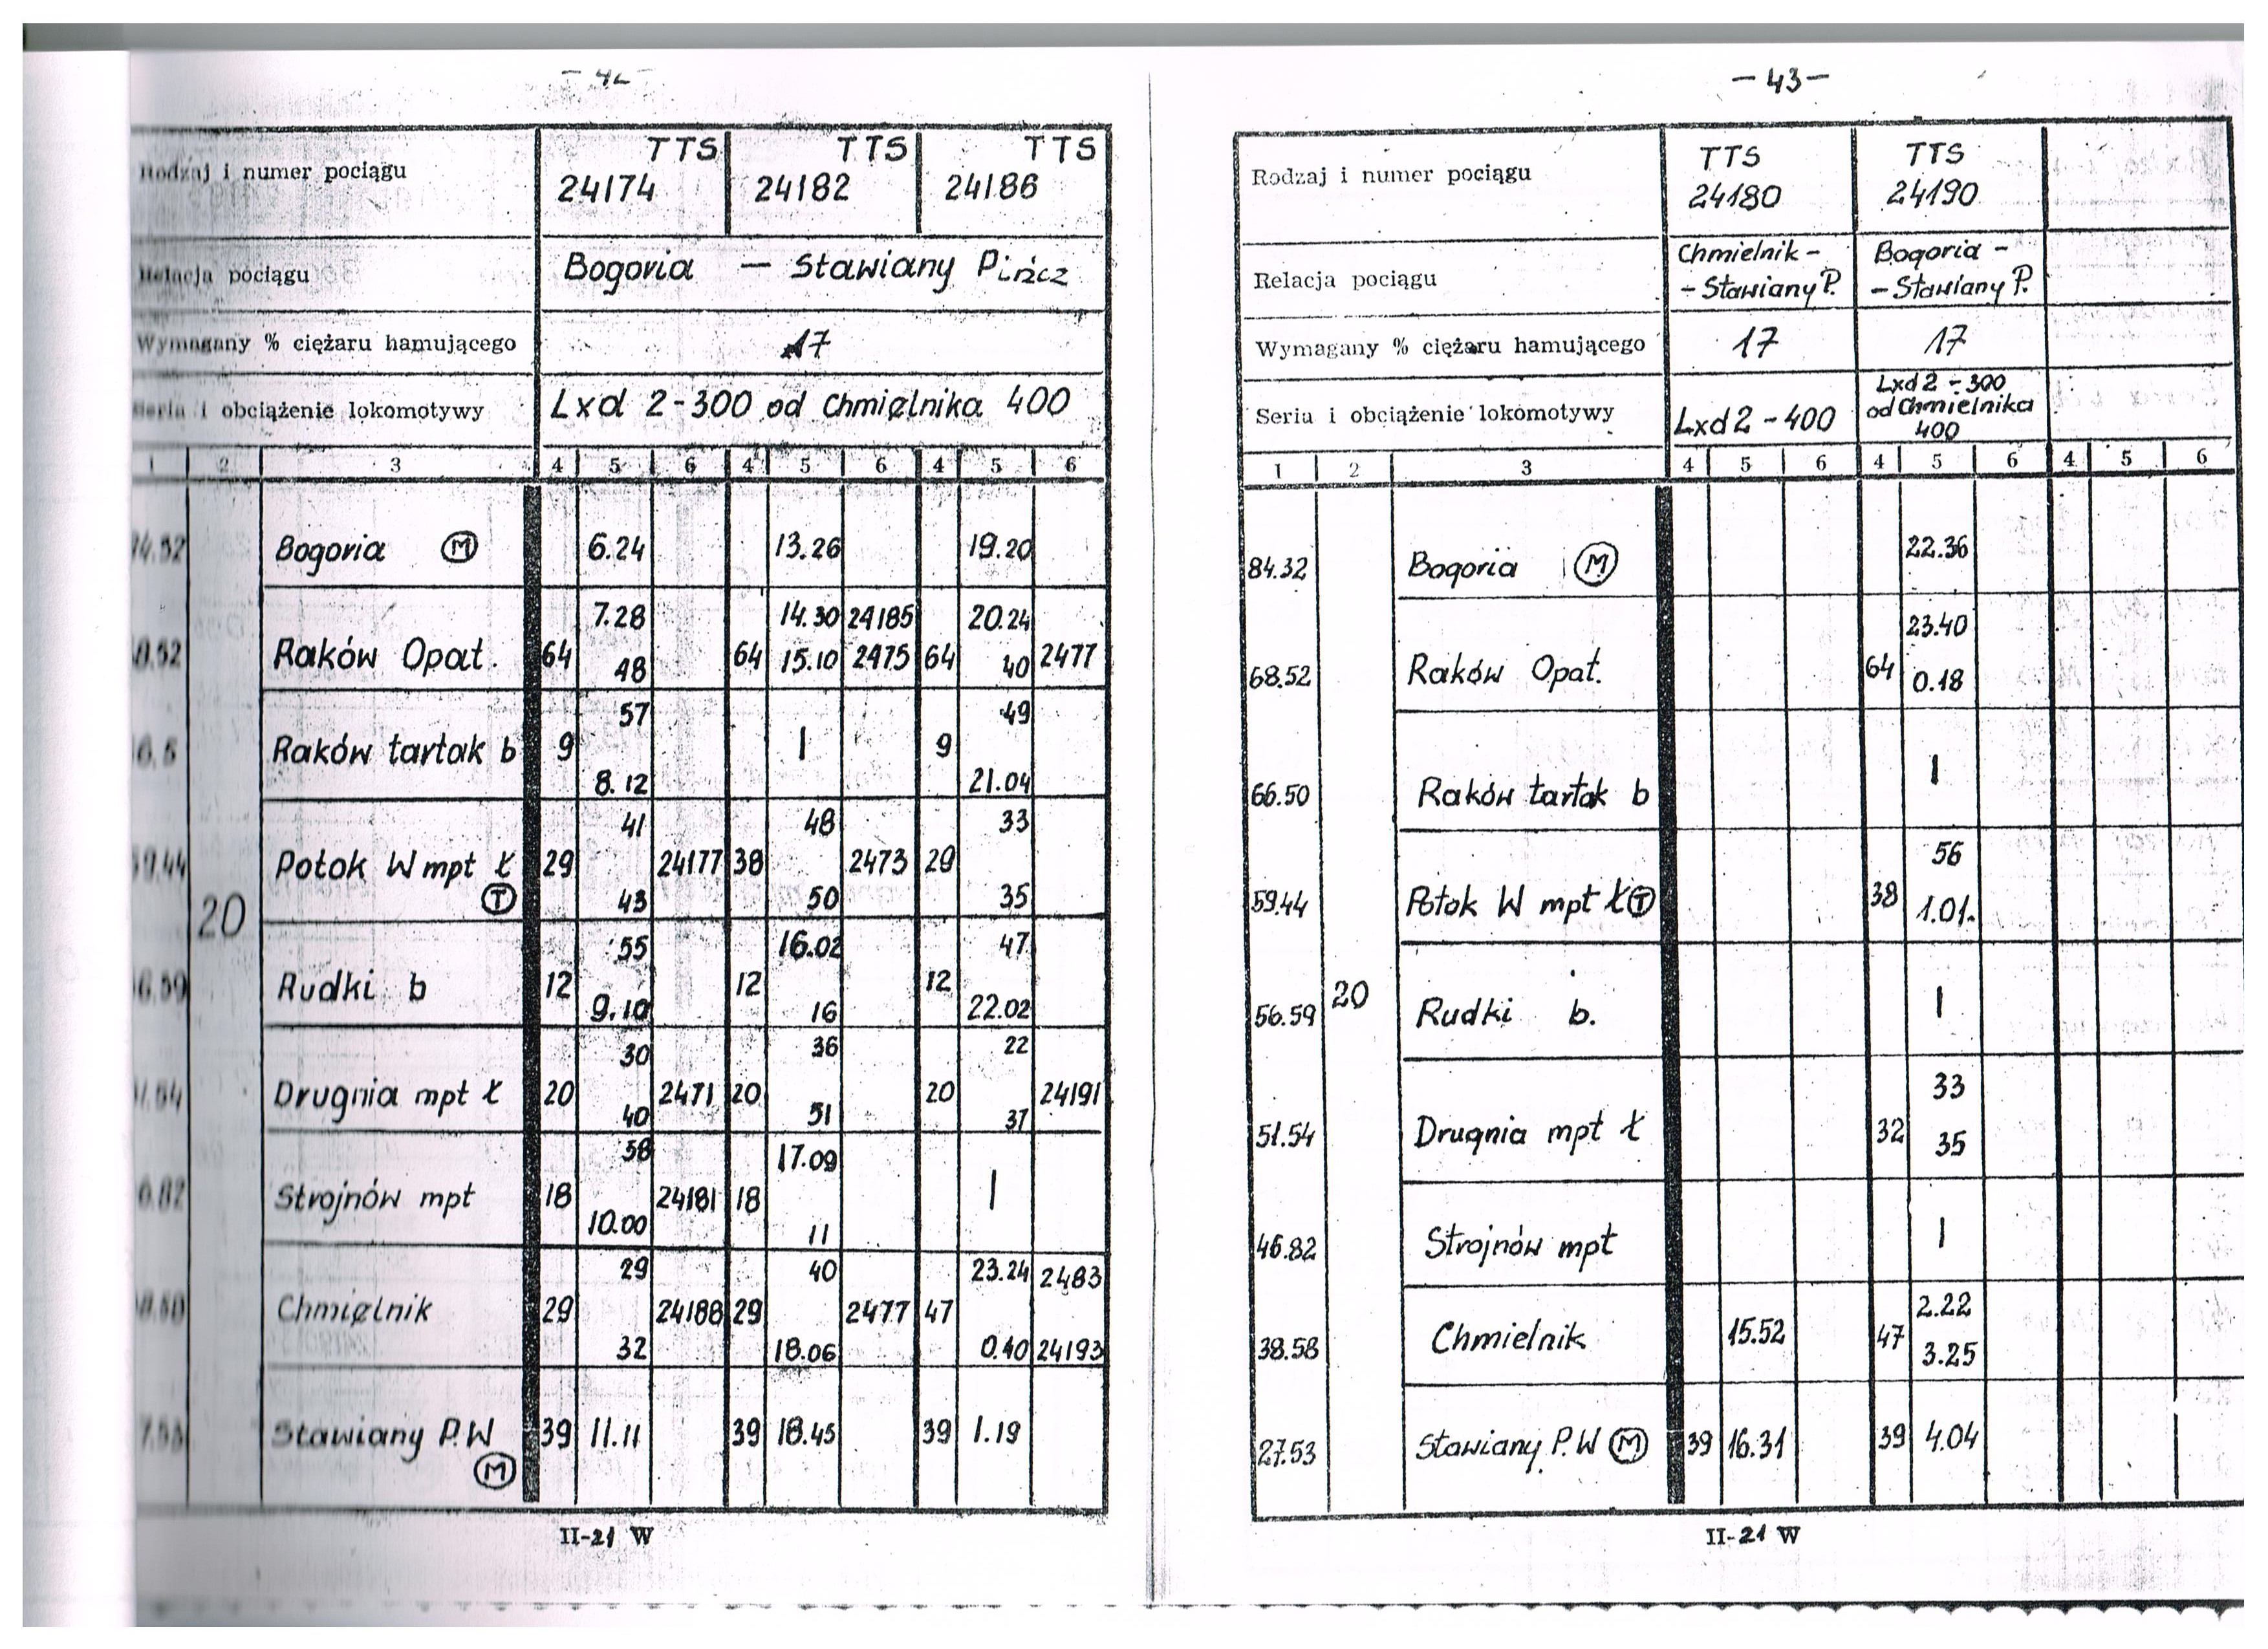 Rodzaj i numer pociągu TTS 24174 TTS 24182 TTS 24186
Relacja pociągu Bogoria — Stawiany Pińcz
Wymagany % ciężaru hamującego 17
Seria i obciążenie lokomotywy Lxd 2-300 od Chmielnika 400
1 2 3 4 5 6 4 5 6 4 5 6
Bogoria (M) 6.24 13.26 19.20
7.28 14.30 24185 20.24
Raków Opat. 64 48 64 15.10 2475 64 40 2477
57 49
Raków tartak b 9 | 9
8.12 21.04
41 48 33
Potok W mpt ł 29 24177 38 2473 29
(T) 43 50 35
20
55 16.02 47
Rudki b 12 12 12
9.10 16 22.02
30 36 22
Drugnia mpt ł 20 2471 20 20 24191
40 51 37
58 17.09
Strojnów mpt 18 24181 18 |
10.00 11
29 40 23.24 2483
Chmielnik 29 24188 29 2477 47
32 18.06 0.40 24193
Stawiany P.W 39 11.11 39 18.45 39 1.19
(M)
II-21 W
—43—
Rodzaj i numer pociągu TTS 24180 TTS 24190
Relacja pociągu Chmielnik - - Stawiany P. Bogoria - - Stawiany P.
Wymagany % ciężaru hamującego 17 17
Seria i obciążenie lokomotywy Lxd2-400 Lxd2-300 od Chmielnika 400
1 2 3 4 5 6 4 5 6 4 5 6
84.32 Bogoria (M) 22.36
23.40
68.52 Raków Opat. 64 0.18
66.50 Raków tartak b |
56
59.44 Potok W mpt ł (T) 38 1.01.
20
56.59 Rudki b. |
33
51.54 Drugnia mpt ł 32 35
46.82 Strojnów mpt |
2.22
38.58 Chmielnik 15.52 47 3.25
27.53 Stawiany P.W (M) 39 16.31 39 4.04
II-21 W